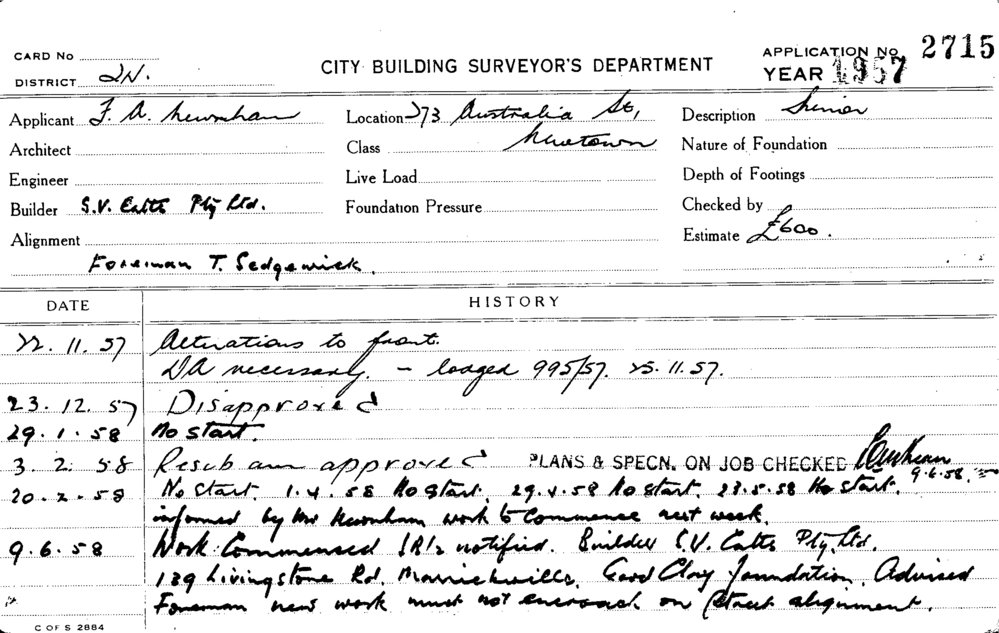 CARD No
DISTRICT 2N.
CITY BUILDING SURVEYOR'S DEPARTMENT
APPLICATION No. 2715
YEAR 1957
Applicant F. A. Newnham
Location 273 Australia St,
Description
Architect
Class Newtown
Nature of Foundation
Engineer
Live Load
Depth of Footings
Builder S.V. Catts Pty Ltd.
Foundation Pressure
Checked by
Alignment
Estimate £600.
Foreman T. Sedgewick.
DATE
HISTORY
22. 11. 57 Alterations to front.
DA necessary. – lodged 995/57. 25. 11. 57.
23. 12. 57 Disapproved
29. 1. 58 No start.
3. 2. 58 approved PLANS & SPECN. ON JOB CHECKED 9.6.58.
20. 2. 58 No start. 1.4.58 No start. 29.4.58 No start. 28.5.58 No start.
informed by Mr Newnham work to commence next week.
9. 6. 58 Work Commensed notified. Builder S.V. Catts Pty. Ltd.
139 Livingstone Rd. Marrickville. Good Clay foundation. Advised
Foreman new work must not encroach on Street alignment.
C OF S 2884